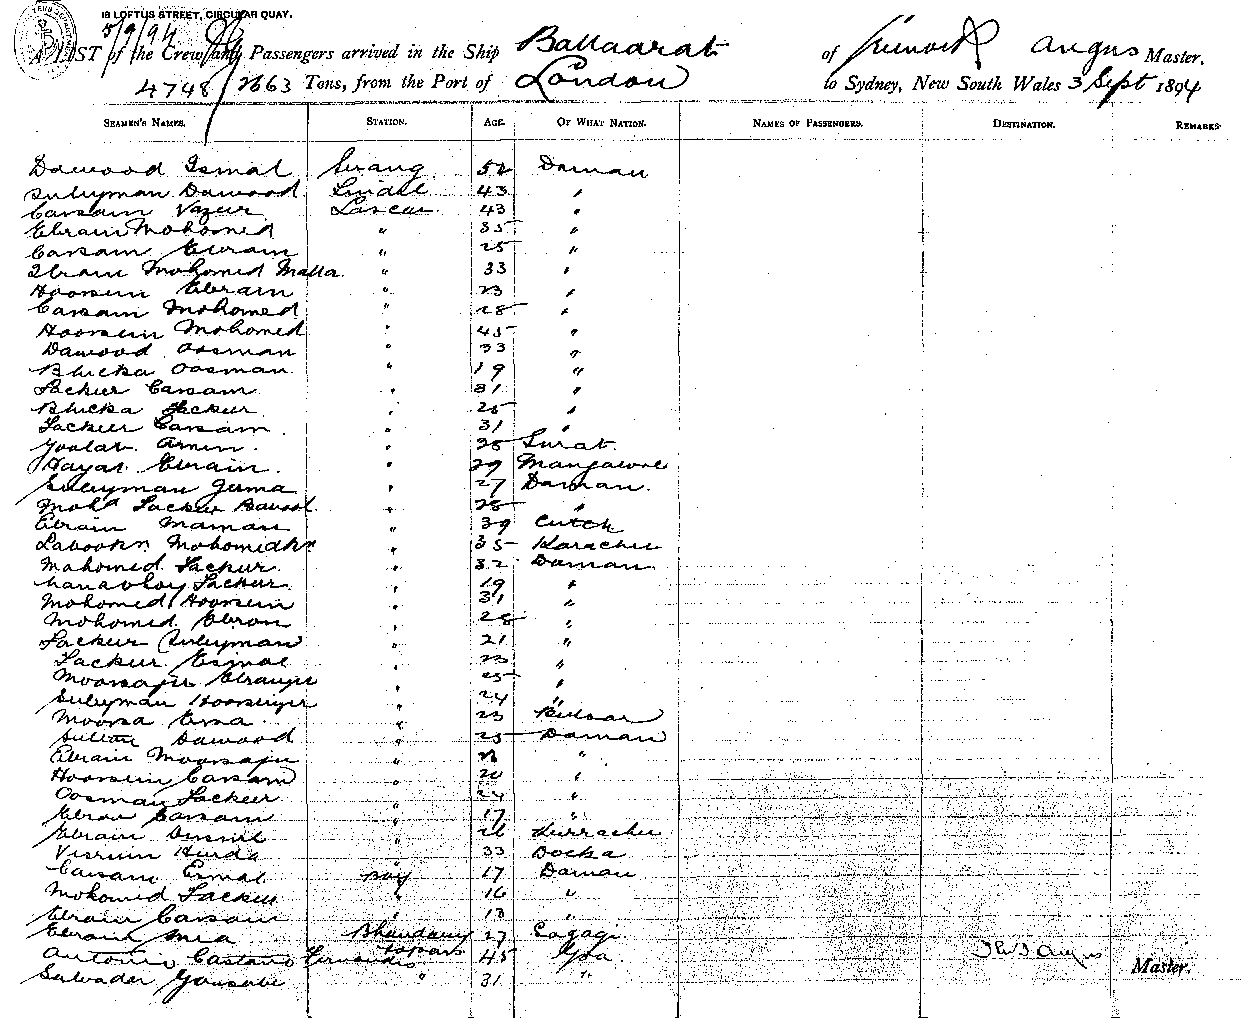 18 LOFTUS STREET, CIRCULAR QUAY.
5/9/94
A LIST of the Crew and Passengers arrived in the Ship Ballaarat of Greenock Angus Master.
4748/2663 Tons, from the Port of London to Sydney, New South Wales 3 Sept 1894
SEAMEN'S NAMES. STATION. AGE. OF WHAT NATION. NAMES OF PASSENGERS. DESTINATION. REMARKS
Dawood Ismal Serang 52 Daman
Suleyman Dawood Tindal 43 "
Cassam Vazeer Lascar 43 "
Ebraim Mohomed " 35 "
Cassam Ebraim " 25 "
Ibraim Mohomed Malla " 33 "
Hoossein Ebraim " 23 "
Cassam Mohomed " 28 "
Hoossein Mohomed " 45 "
Dawood Oosman " 33 "
Bhicka Oosman " 19 "
Jackur Cassam " 31 "
Bhicka Jackur " 25 "
Jackeer Cassam " 31 "
Amin " 25 Surat
Hayat Ebraim " 29 Mangalore
Suleyman Juma " 27 Daman
Mohd Jackur " 25 "
Ebraim Maman " 39 Cutch
Mohomidkn " 35 Karachee
Mahomed Jackur " 32 Daman
Jackur " 19 "
Mohomed Hoossein " 31 "
Mohomed Ebram " 28 "
Jackur Suleyman " 21 "
Jackur Esmal " 23 "
Moosajee Ebramjee " 25 "
Suleyman " 24 "
Moosa Essa " 23 Bulsar
Sultan Dawood " 25 Daman
Ebraim Moosajee " "
Hoossein Cassam " 20 "
Oosman Jackeer " 24 "
Ebram Cassam " 17 "
Ebraim " 26 Kurrachee
Hurda " 33
Cassam Esmal Boy 17 Daman
Mohomed Jackur " 16 "
Ebraim Cassam " 13 "
Ebraim Mia Bhandary 27
Antonio Castano Fernandis Topass 45 Goa
Salvador " 31 "
Angus Master.